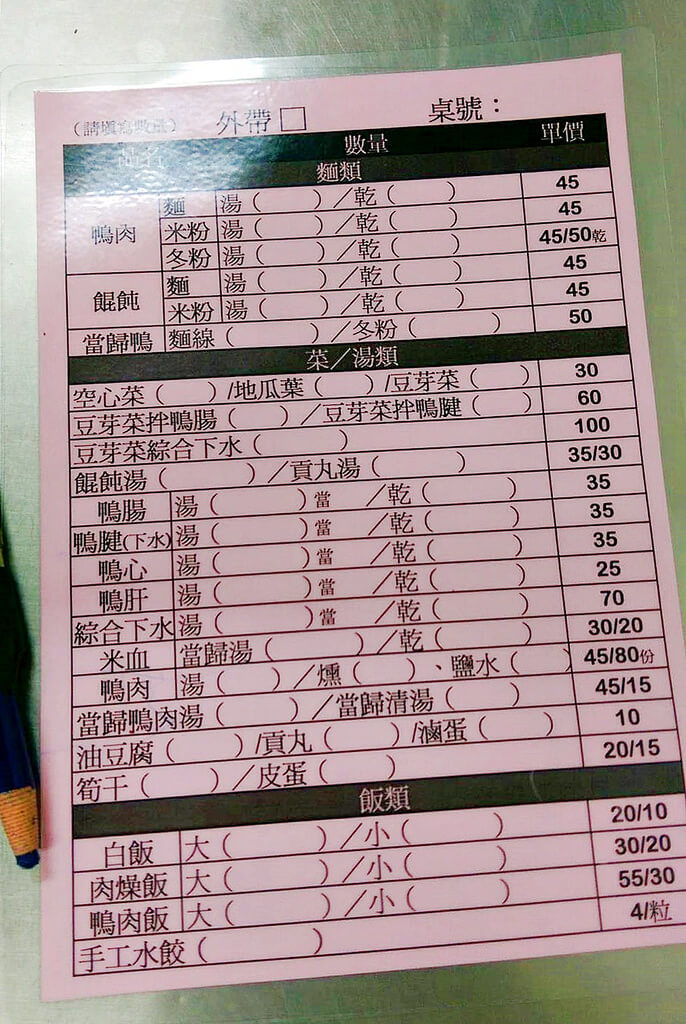 （請填寫數量） 外帶□ 桌號：
品名 數量 單價
麵類
鴨肉 麵 湯（ ）／乾（ ） 45
米粉 湯（ ）／乾（ ） 45
冬粉 湯（ ）／乾（ ） 45/50乾
餛飩 麵 湯（ ）／乾（ ） 45
米粉 湯（ ）／乾（ ） 45
當歸鴨 麵線（ ）／冬粉（ ） 50
菜／湯類
空心菜（ ）/地瓜葉（ ）/豆芽菜（ ） 30
豆芽菜拌鴨腸（ ）／豆芽菜拌鴨腱（ ） 60
豆芽菜綜合下水（ ） 100
餛飩湯（ ）／貢丸湯（ ） 35/30
鴨腸 湯（ ）當 ／乾（ ） 35
鴨腱(下水) 湯（ ）當 ／乾（ ） 35
鴨心 湯（ ）當 ／乾（ ） 35
鴨肝 湯（ ）當 ／乾（ ） 25
綜合下水 湯（ ）當 ／乾（ ） 70
米血 當歸湯（ ）／乾（ ） 30/20
鴨肉 湯（ ）／燻（ ）、鹽水（ ） 45/80份
當歸鴨肉湯（ ）／當歸清湯（ ） 45/15
油豆腐（ ）/貢丸（ ）/滷蛋（ ） 10
筍干（ ）／皮蛋（ ） 20/15
飯類
白飯 大（ ）／小（ ） 20/10
肉燥飯 大（ ）／小（ ） 30/20
鴨肉飯 大（ ）／小（ ） 55/30
手工水餃（ ） 4/粒